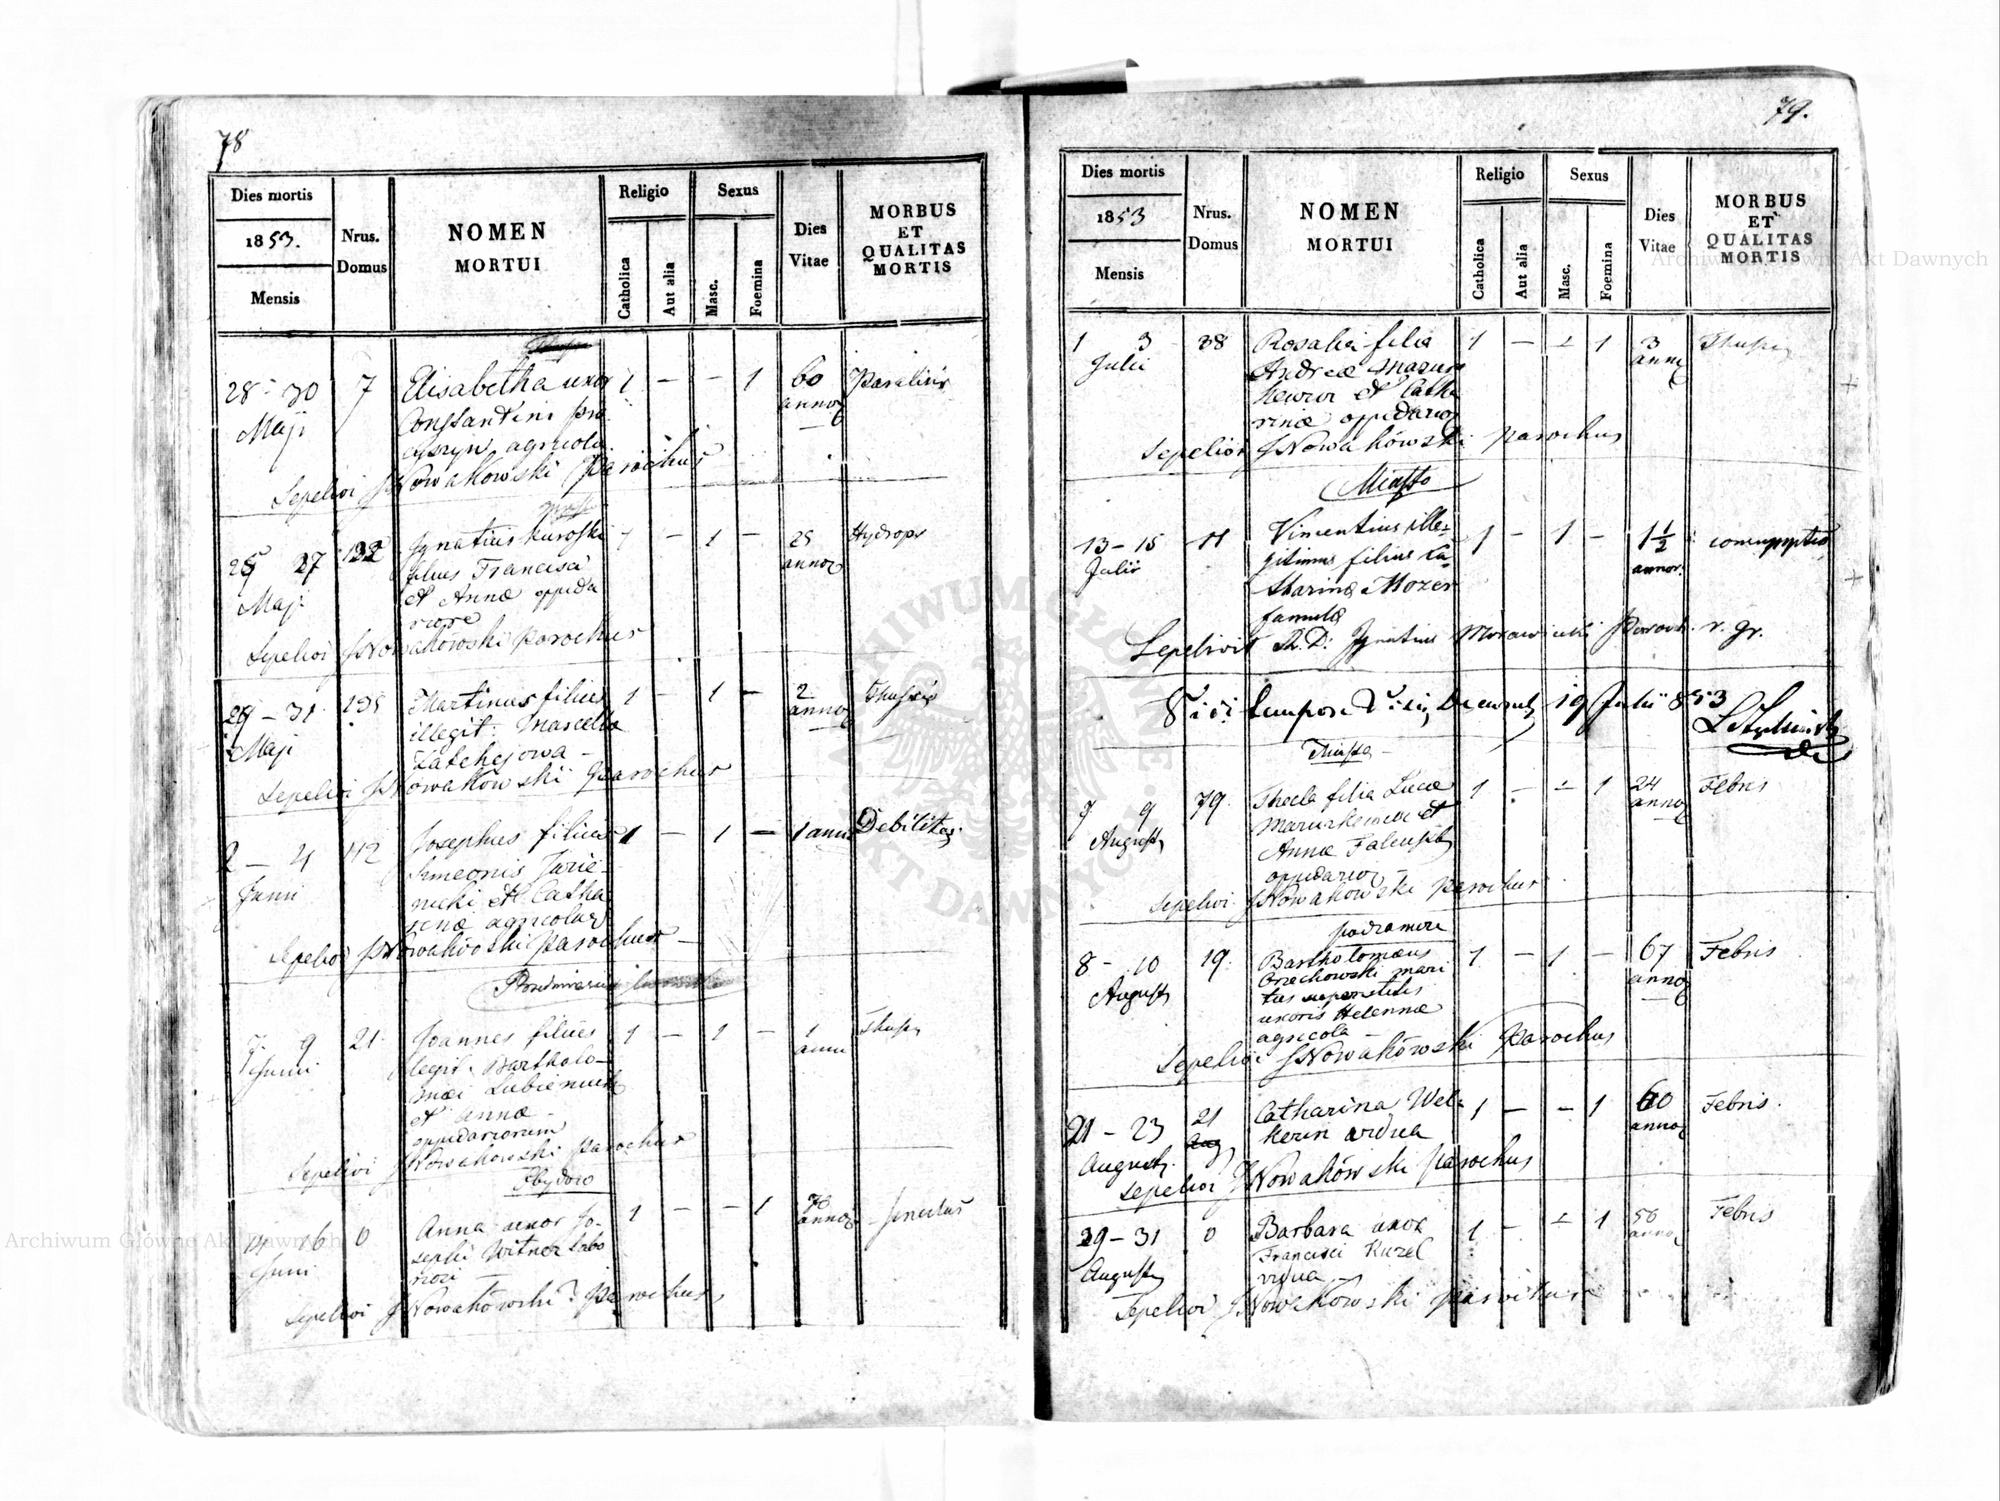 78
Dies mortis
1853.
Mensis
Nrus.
Domus
NOMEN
MORTUI
Religio
Catholica
Aut alia
Sexus
Masc.
Foemina
Dies
Vitae
MORBUS
ET
QUALITAS
MORTIS
28 - 30 7 Elisabetha uxor 1 - - 1 60 Paralisis
Maji Constantini annor
agricola
Sepelivi JNowakowski Parochus
25 27 132 Ignatius Kuroski 1 - 1 - 25 Hydrops
Maji filius Francisci annor
et Annæ oppida
Sepelivi JNowakowski Parochus
29 - 31 135 Martinus filius 1 - 1 - 2 Thussis
Maji illegit. Marcella annor
Sepelivi JNowakowski Parochus
2 - 4 112 Josephus filius 1 - 1 - 1 anni Debilitas
Junii Simeonis
et Catha
rinæ agricolar
Sepelivi JNowakowski Parochus
7 9 21 Joannes filius 1 - 1 - 1 Thussis
Junii legit. Bartholo- anni
mæi
et Annæ
oppidariorum
Sepelivi JNowakowski Parochus
14 16 0 Anna uxor Jo- 1 - - 1 70 Senectus
Junii sephi Witner labo annor
Sepelivi JNowakowski Parochus
79.
Dies mortis
1853
Mensis
Nrus.
Domus
NOMEN
MORTUI
Religio
Catholica
Aut alia
Sexus
Masc.
Foemina
Dies
Vitae
MORBUS
ET
QUALITAS
MORTIS
1 3 38 Rosalia filia 1 - - 1 3 Thussis
Julii Andreæ Mazur annor
et Catha
rinæ oppidarior
Sepelivi JNowakowski Parochus
Miasto
13 - 15 11 Vincentius ille- 1 - 1 - 1 1/2 consumptio
Julii gitimus filius Ca- annor.
tharinæ Mozer
famula
Sepelivit A. D. Ignatius r. gr.
tempore 19 Julii 853
7 9 79 Thecla filia Lucæ 1 - - 1 24 Febris
Augusti Mazurkiewicz et annor
Annæ
oppidarior
Sepelivi JNowakowski Parochus
8 - 10 19 Bartholomæus 1 - 1 - 67 Febris
Augusti Orzechowski mari annor
tus superstitis
uxoris Helennæ
agricola
Sepelivi JNowakowski Parochus
21 - 23 21 Catharina Wel- 1 - - 1 60 Febris
Augusti kerin vidua annor
Sepelivi JNowakowski Parochus
29 - 31 0 Barbara uxor 1 - - 1 50 Febris
Augusti Francisci Kuzel annor
vidua
Sepelivi JNowakowski Parochus
Archiwum Główne Akt Dawnych
Archiwum Główne Akt Dawnych
ARCHIWUM GŁÓWNE AKT DAWNYCH